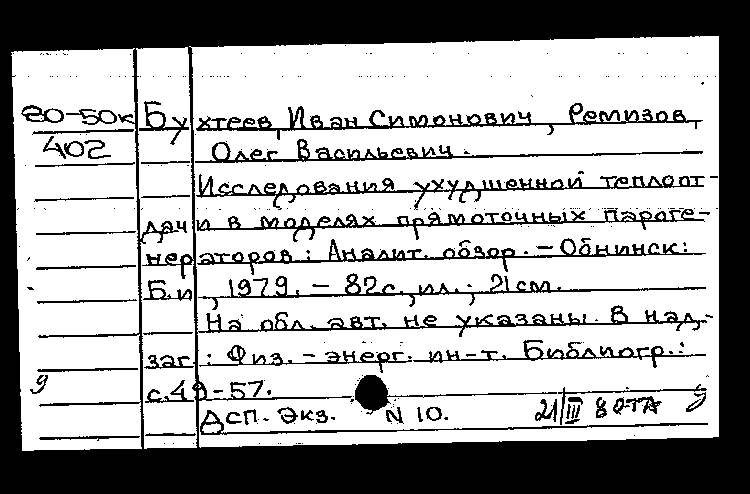 80-50к Бухтеев, Иван Симонович, Ремизов,
402 Олег Васильевич.
Исследования ухудшенной теплоот-
дачи в моделях прямоточных пароге-
нераторов: Аналит. обзор. - Обнинск:
Б.и, 1979. - 82с., ил.; 21см.
На обл. авт. не указаны. В над-
заг.: Физ. - энерг. ин-т. Библиогр.:
с.49-57.
ДСП. Экз. N 10. 21/III 80